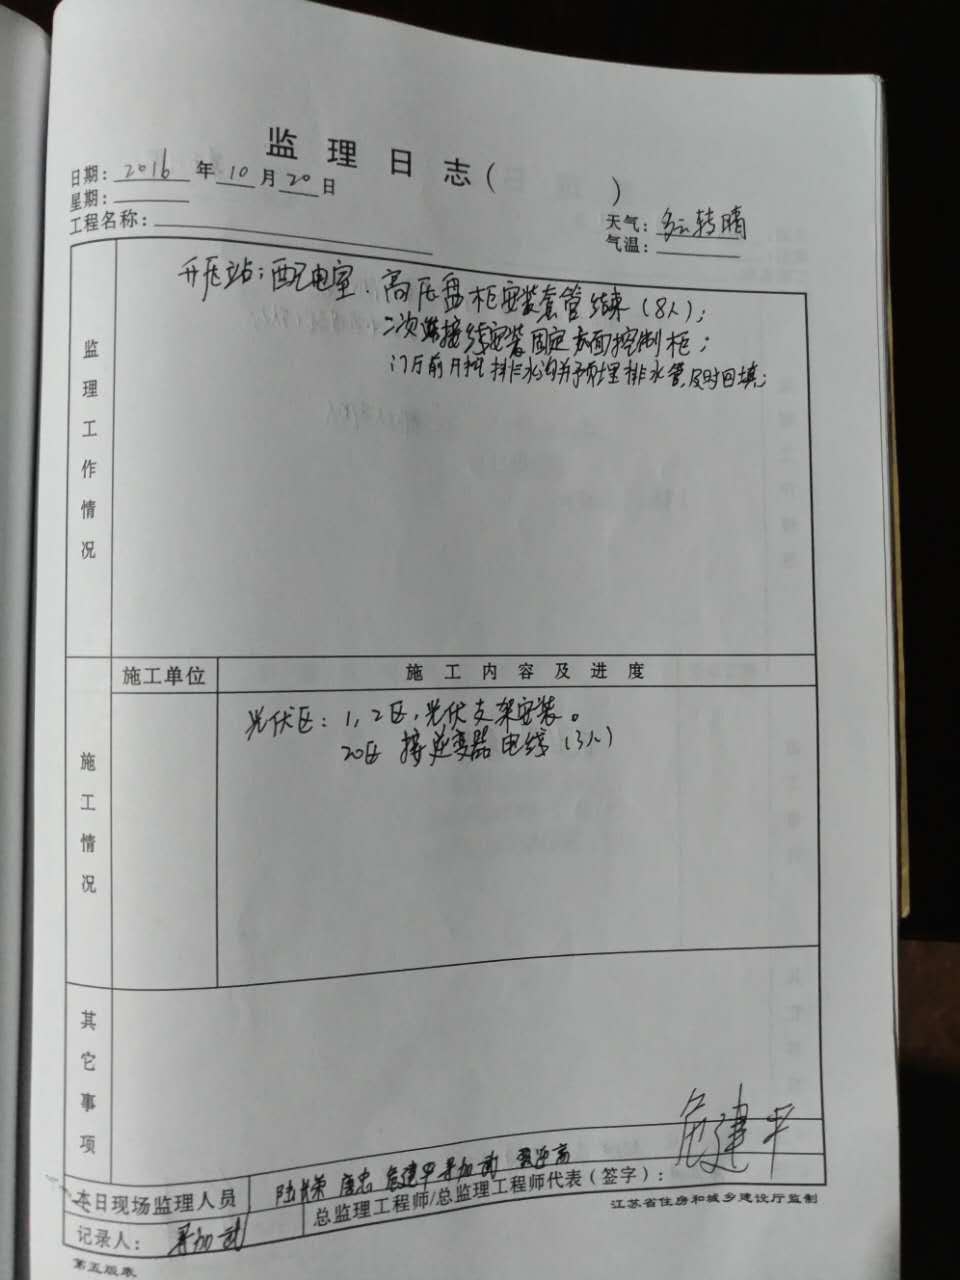 监理日志( )
日期: 2016 年 10 月 20 日
星期:
工程名称:
天气: 多云转晴
气温:
监理工作情况
升压站: 配电室. 高压盘柜安装套管结束 (8人);
二次连接线安装固定 控制柜;
门厅前开挖排水沟并预埋排水管,及时回填;
施工情况
施工单位
施工内容及进度
光伏区: 1, 2区, 光伏支架安装。
20区 接逆变器电线 (3人)
其它事项
本日现场监理人员
唐忠 危建平
总监理工程师/总监理工程师代表(签字): 危建平
记录人:
江苏省住房和城乡建设厅监制
第五版表